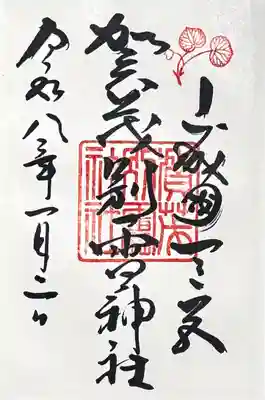 山城國一之宮
賀茂別雷神社
令和八年一月二日